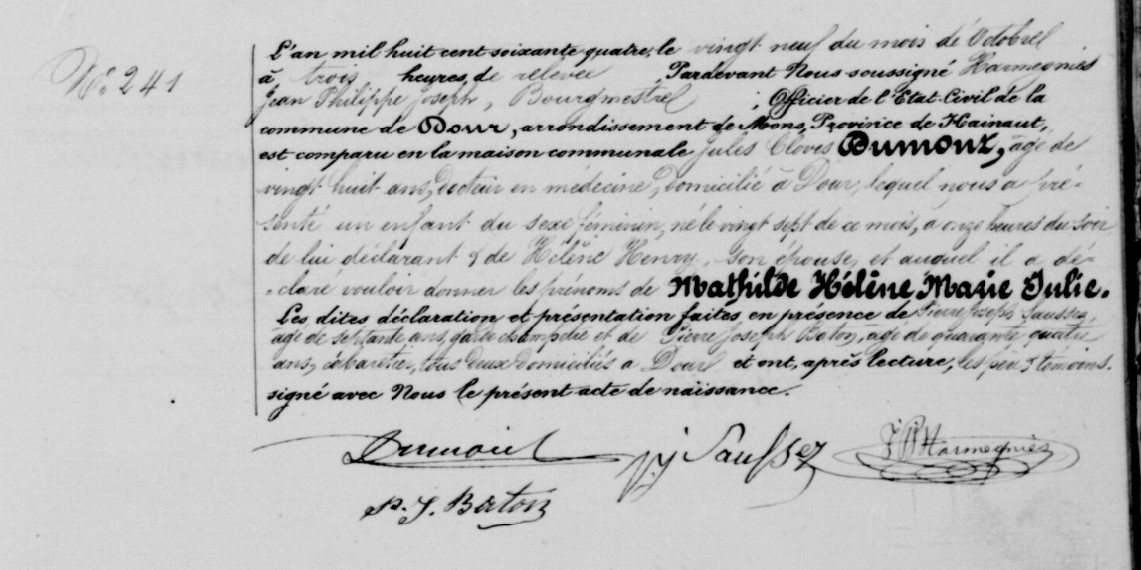 N° 241
L'an mil huit cent soixante quatre, le vingt neuf du mois de Octobre
à trois heures, de relevée, Pardevant Nous soussigné Harmegnies
Jean Philippe Joseph, Bourgmestre, Officier de l'Etat-Civil de la
commune de Dour, arrondissement de Mons, Province de Hainaut,
est comparu en la maison communale Jules Clovis Dumont, âgé de
vingt huit ans, docteur en médecine, domicilié à Dour, lequel nous a pré-
senté un enfant du sexe féminin, né le vingt sept de ce mois, à onze heures du soir
de lui déclarant & de Hélène Henry, son épouse, et auquel il a dé-
-claré vouloir donner les prénoms de Mathilde Hélène Marie Julie.
Les dites déclaration et présentation faites en présence de Pierre Joseph Saussez,
âgé de septante ans, garde champêtre et de Pierre Joseph Baton, âgé de quarante quatre
ans, cabaretier, tous deux domiciliés à Dour et ont, après lecture, les père & témoins.
signé avec Nous le présent acte de naissance.
Dumont PJ Saussez JP Harmegnies
P. J. Baton